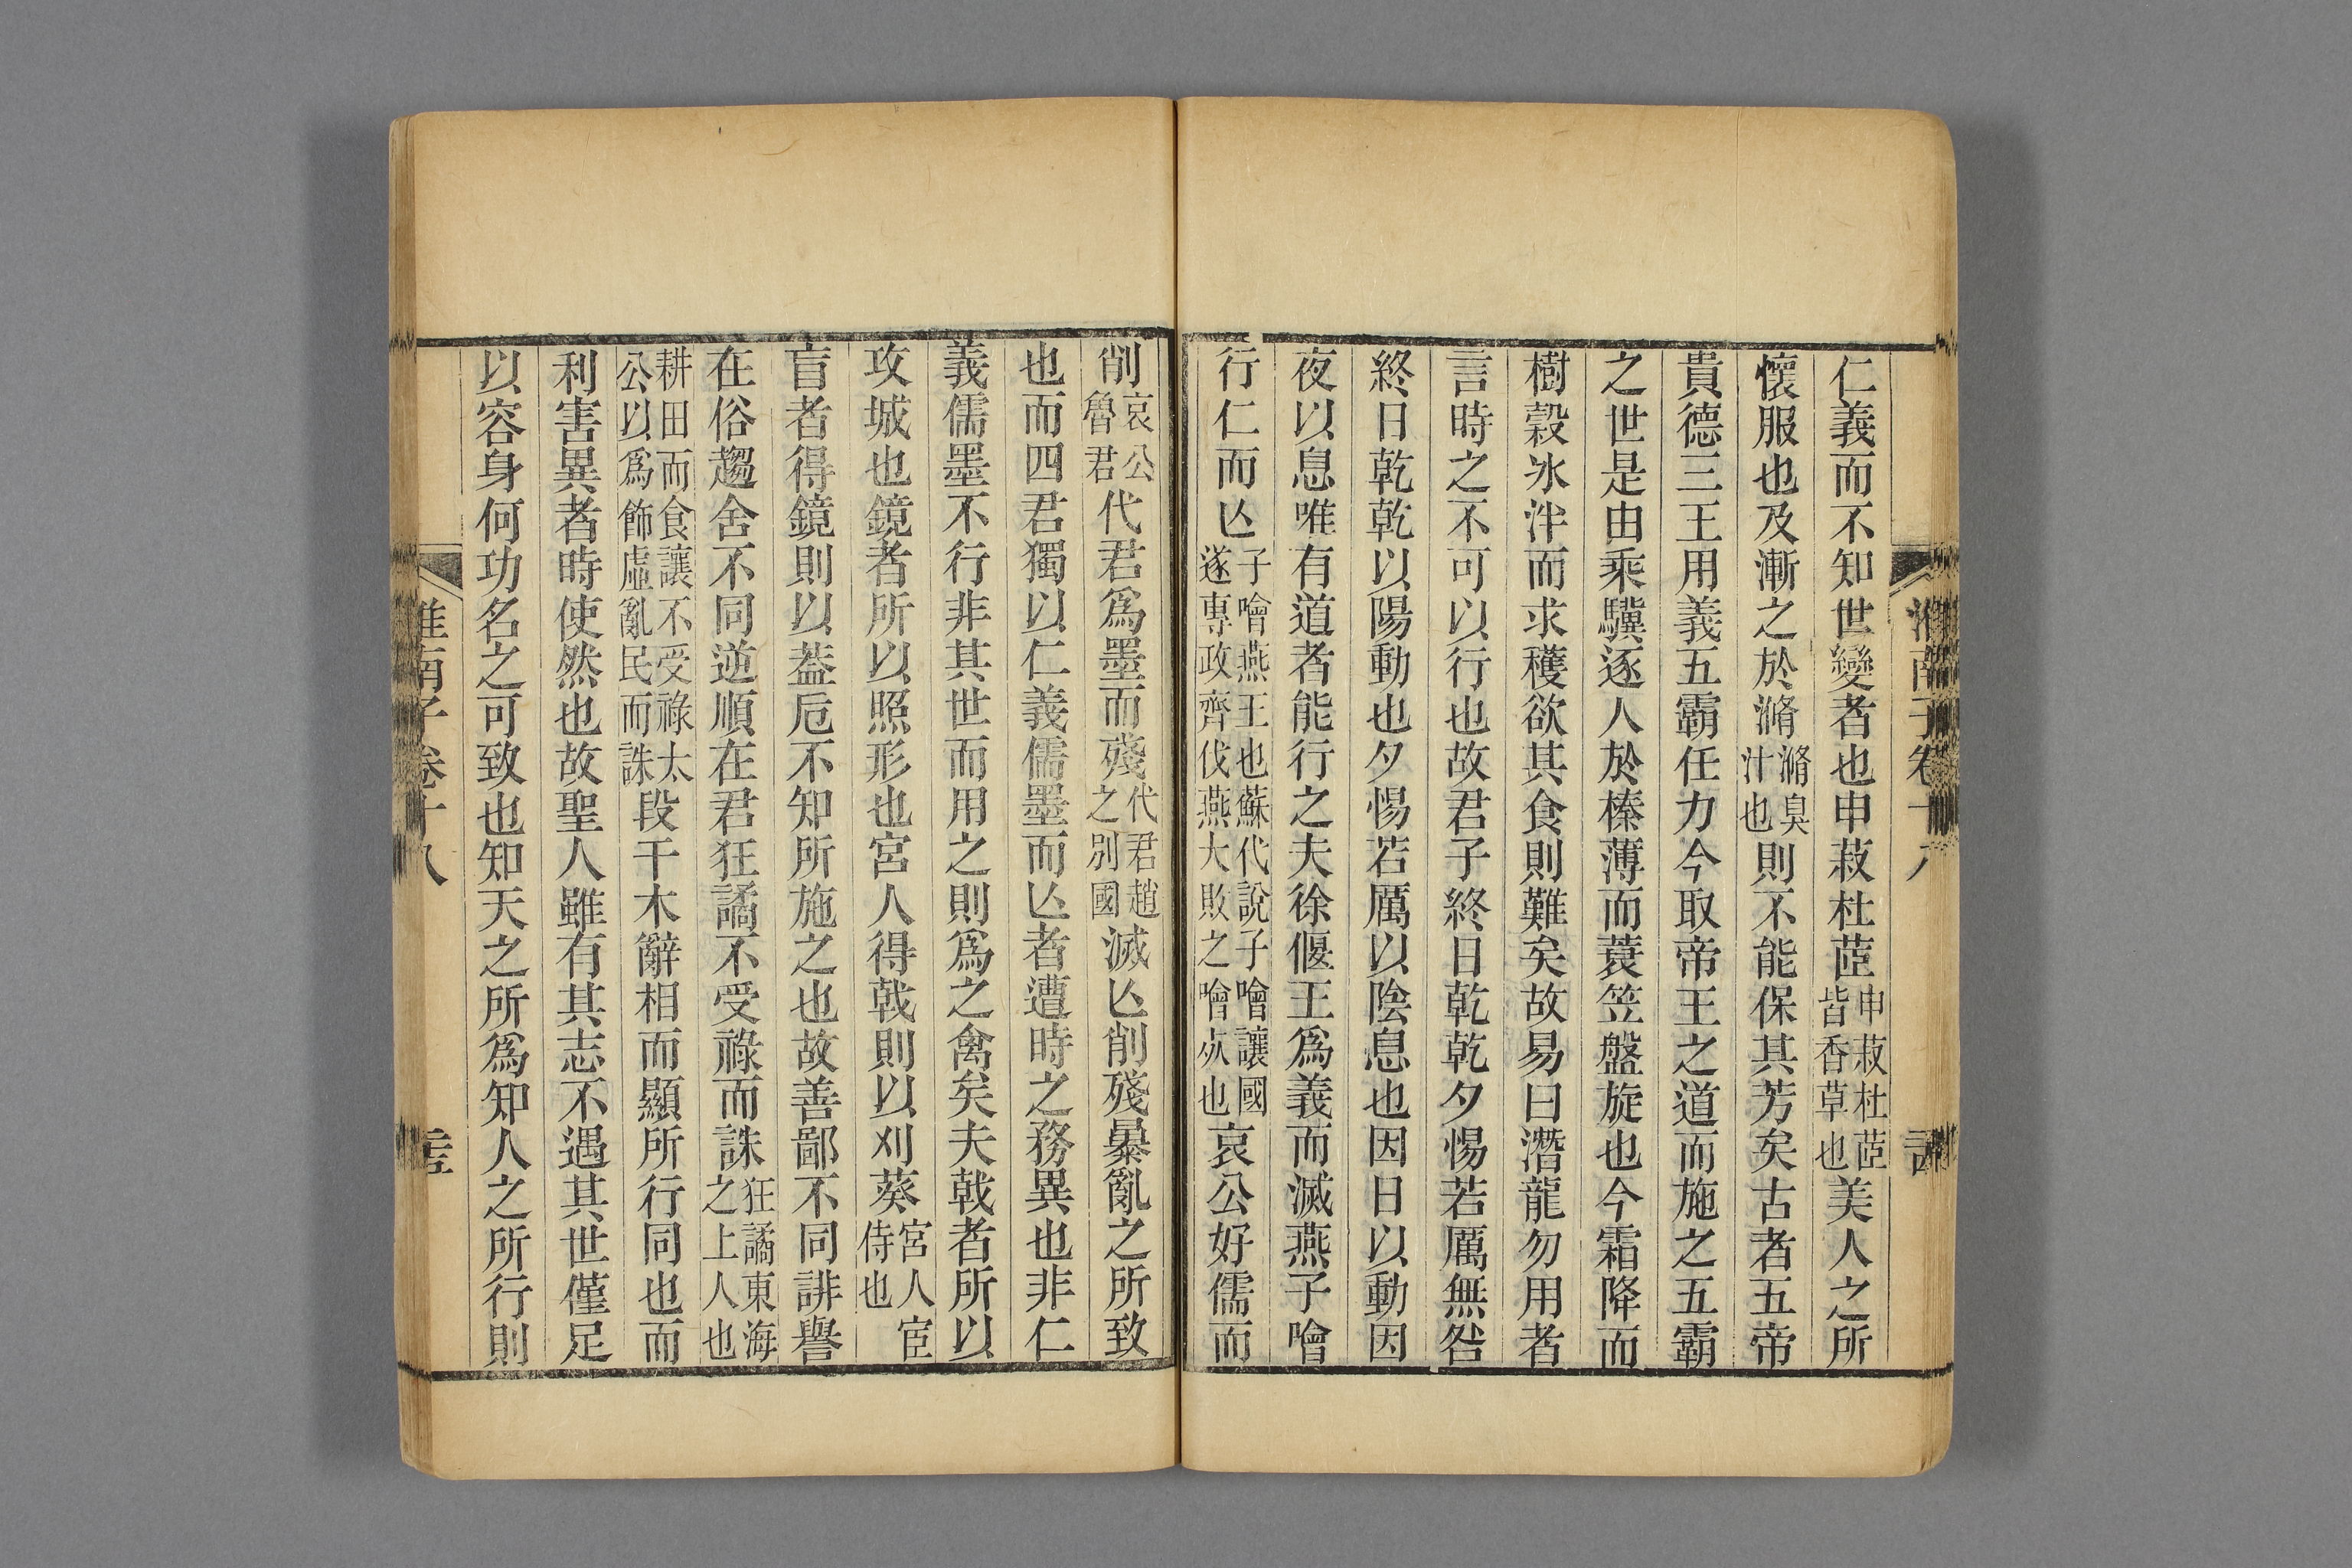 仁義而不知世變者也申菽杜茞申菽杜茞皆香草也美人之所
懷服也及漸之於滫滫臭汁也則不能保其芳矣古者五帝
貴德三王用義五霸任力今取帝王之道而施之五霸
之世是由乘驥逐人於榛薄而蓑笠盤旋也今霜降而
樹穀氷泮而求穫欲其食則難矣故易曰潛龍勿用者
言時之不可以行也故君子終日乾乾夕惕若厲無咎
終日乾乾以陽動也夕惕若厲以陰息也因日以動因
夜以息唯有道者能行之夫徐偃王爲義而滅燕子噲
行仁而亾子噲燕王也蘇代說子噲讓國遂專政齊伐燕大敗之噲㱙也哀公好儒而
削哀公魯君代君爲墨而殘代君趙之別國滅亾削殘暴亂之所致
也而四君獨以仁義儒墨而亾者遭時之務異也非仁
義儒墨不行非其世而用之則爲之禽矣夫戟者所以
攻城也鏡者所以照形也宮人得戟則以刈葵宮人宦侍也
盲者得鏡則以蓋卮不知所施之也故善鄙不同誹譽
在俗趨舍不同逆順在君狂譎不受祿而誅狂譎東海之上人也
耕田而食讓不受祿太公以爲飾虛亂民而誅段干木辭相而顯所行同也而
利害異者時使然也故聖人雖有其志不遇其世僅足
以容身何功名之可致也知天之所爲知人之所行則
淮南子卷十八